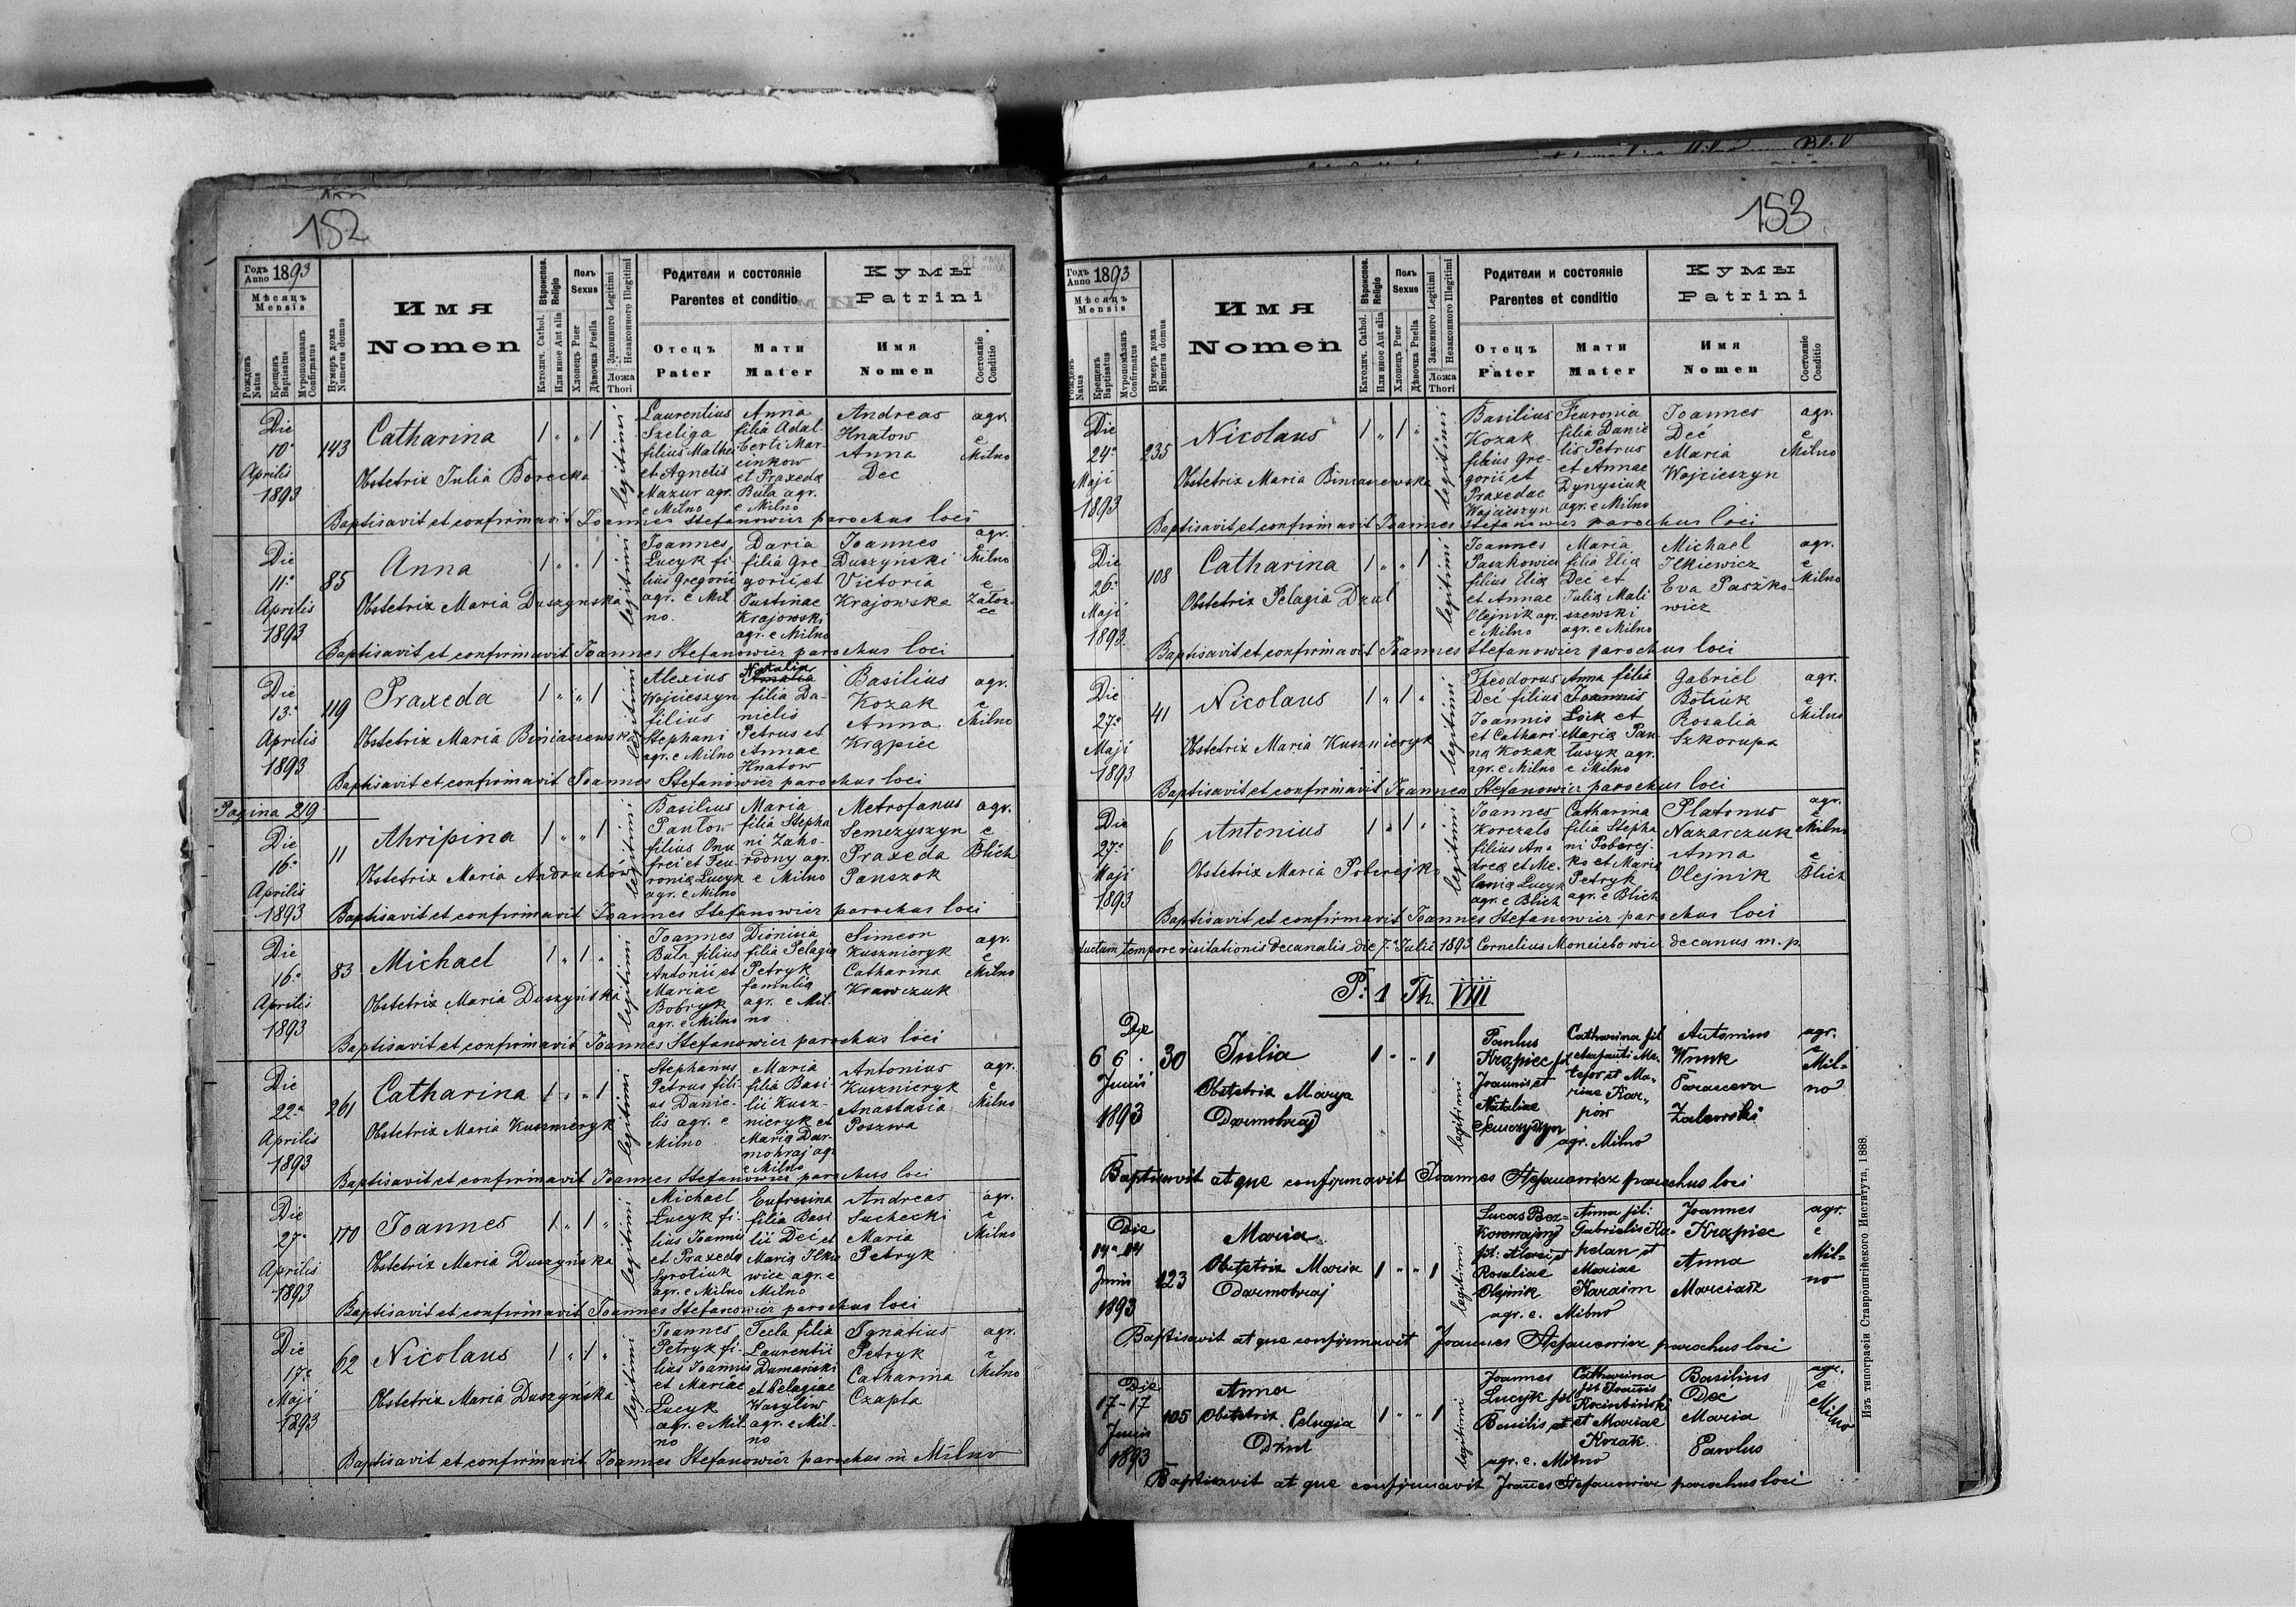 152
Годъ Anno 1893
Мѣсяцъ Mensis
Рожденъ Natus
Крещенъ Baptisatus
Муропомазанъ Confirmatus
Нумеръ дома Numerus domus
Имя Nomen
Вѣроиспов. Religio
Католич. Cathol.
Или иное Aut alia
Полъ Sexus
Хлопецъ Puer
Дѣвочка Puella
Законного Legitimi
Незаконного Illegitimi
Ложа Thori
Родители и состояніе
Parentes et conditio
Отецъ Pater
Мати Mater
Кумы Patrini
Имя Nomen
Состояніе Conditio
Die 10ª Aprilis 1893
143
Catharina
Obstetrix Iulia Borecka
1 " " 1
legitimi
Laurentius Szeliga filius Mathei et Agnetis Mazur agr. e Milno
Anna filia Adalberti Marcinkow et Praxeda Bula agr. e Milno
Andreas Hnatow
Anna Dec
agr. e Milno
Baptisavit et confirmavit Ioannes Stefanowicz parochus loci
Die 11ª Aprilis 1893
85
Anna
Obstetrix Maria Duszyńska
1 " " 1
legitimi
Ioannes Lucyk filius Gregorii agr. e Milno.
Daria filia Gregorii et Justinae Krajowski agr. e Milno
Ioannes Duszyński
Victoria Krajowska
agr. Milno e Załoz-ce
Baptisavit et confirmavit Ioannes Stefanowicz parochus loci
Die 13ª Aprilis 1893
119
Praxeda
Obstetrix Maria Biniaszewski
1 " " 1
legitimi
Alexius Wojcieszyn filius Stephani agr. e Milno
Natalia Amalia filia Danielis Petrus et Annae Hnatow
Basilius Kozak
Anna Krąpiec
agr. e Milno
Baptisavit et confirmavit Ioannes Stefanowicz parochus loci
Pagina 219
Die 16ª Aprilis 1893
11
Ahripina
Obstetrix Maria Andruchów
1 " " 1
legitimi
Basilius Pawłow filius Onufrei et Feuronia Lucyk agr. e Milno
Maria filia Stephani Zahorodny agr. e Milno
Metrofanus Semczyszyn
Praxeda Panszok
agr. e Blich
Baptisavit et confirmavit Ioannes Stefanowicz parochus loci
Die 16ª Aprilis 1893
83
Michael
Obstetrix Maria Duszyńska
1 " 1 "
legitimi
Ioannes Bula filius Antonii et Mariae Bobryk agr. e Milno
Dionisia filia Pelagia Petryk famulia agr. e Milno
Simeon Kusznieryk
Catharina Krawczuk
agr. e Milno
Baptisavit et confirmavit Ioannes Stefanowicz parochus loci
Die 22ª Aprilis 1893
261
Catharina
Obstetrix Maria Kusznieryk
1 " " 1
legitimi
Stephanus Petrus filius Danielis agr. e Milno
Maria filia Basilii Kusznieryk et Maria Darmohraj agr. e Milno
Antonius Kusznieryk
Anastasia Poszwa
agr. e Milno
Baptisavit et confirmavit Ioannes Stefanowicz parochus loci
Die 27ª Aprilis 1893
170
Ioannes
Obstetrix Maria Duszyńska
1 " 1 "
legitimi
Michael Lucyk filius Ioannis et Praxeda Syrotiuk agr. e Milno
Eufrosina filia Basilii Deć et Maria Ilkiewicz agr. e Milno
Andreas Suchecki
Maria Petryk
agr. e Milno
Baptisavit et confirmavit Ioannes Stefanowicz parochus loci
Die 17ª Maji 1893
62
Nicolaus
Obstetrix Maria Duszyńska
1 " 1 "
legitimi
Ioannes Petryk filius Ioannis et Mariae Lucyk agr. e Milno
Tecla filia Laurentii Dumański et Pelagiae Wasyliw agr. e Milno
Ignatius Petryk
Catharina Czapla
agr. e Milno
Baptisavit et confirmavit Ioannes Stefanowicz parochus in Milno
153
Годъ Anno 1893
Мѣсяцъ Mensis
Рожденъ Natus
Крещенъ Baptisatus
Муропомазанъ Confirmatus
Нумеръ дома Numerus domus
Имя Nomen
Вѣроиспов. Religio
Католич. Cathol.
Или иное Aut alia
Полъ Sexus
Хлопецъ Puer
Дѣвочка Puella
Законного Legitimi
Незаконного Illegitimi
Ложа Thori
Родители и состояніе
Parentes et conditio
Отецъ Pater
Мати Mater
Кумы Patrini
Имя Nomen
Состояніе Conditio
Die 24ª Maji 1893
235
Nicolaus
Obstetrix Maria Biniaszewska
1 " 1 "
legitimi
Basilius Kozak filius Gregorii et Praxedae Wojcieszyn
Feuronia filia Danielis Petrus et Annae Dynysiuk agr. e Milno
Ioannes Deć
Maria Wojcieszyn
agr. e Milno
Baptisavit et confirmavit Ioannes Stefanowicz parochus loci
Die 26ª Maji 1893.
108
Catharina
Obstetrix Pelagia Dzul
1 " " 1
legitimi
Ioannes Paszkowicz filius Elia et Annae Olejnik agr. e Milno
Maria filia Elia Dec et Julia Maliszewski agr. e Milno
Michael Ilkiewicz
Eva Paszkowicz
agr. e Milno
Baptisavit et confirmavit Ioannes Stefanowicz parochus loci
Die 27ª Maji 1893
41
Nicolaus
Obstetrix Maria Kusznieryk
1 " 1 "
legitimi
Theodorus Deć filius Ioannis et Catharina Kozak agr. e Milno
Anna filia Ioannis Łoik et Maria Panłusyk agr. e Milno
Gabriel Botiuk
Rosalia Szkorupa
agr. e Milno
Baptisavit et confirmavit Ioannes Stefanowicz parochus loci
Die 27ª Maji 1893
6
Antonius
Obstetrix Maria Poberejko
1 " 1 "
legitimi
Ioannes Korczalo filius Andrea et Melania Lucyk agr. e Blich
Catharina filia Stephani Poberejko et Maria Petryk agr. e Blich
Platonus Nazarczuk
Anna Olejnik
agr. e Milno e Blich
Baptisavit et confirmavit Ioannes Stefanowicz parochus loci
ductum tempore visitationis decanalis die 7ª Iulii 1893 Cornelius decanus m. p.
P: 1 Th. VIII
Die 6 6 Junii 1893
30
Iulia
Obstetrix Marya Darmohraj
1 " " 1
legitimi
Paulus Krąpiec fil Joannis et Nataliae Semczyszyn
Catharina fil et Mariae Karpow
agr. Milno
Antonius Wnuk
Parasceva Zalewski
agr. e Milno
Baptisavit atque confirmavit Joannes Stefanowicz parochus loci
Die 14ª 14 Junii 1893
123
Maria
Obstetrix Maria Darmohraj
1 " " 1
legitimi
Lucas Bezkorowajnyj fil: Alexei et Rosaliae Olejnik
Anna fil: Gabrielis Kapelan et Mariae Karaim
agr. e. Milno
Joannes Krąpiec
Anna Marciasz
agr. e Milno
Baptisavit atque confirmavit Joannes Stefanowicz parochus loci
Die 17-17 Junii 1893
105
Anna
Obstetrix Pelagia Dzul
1 " " 1
legitimi
Joannes Lucyk fil Basilis et
Catharina fil Joannis Kociubiński et Mariae Kozak
agr. e. Milno
Basilius Deć
Maria Pawlus
agr. e Milno
Baptisavit atque confirmavit Joannes Stefanowicz parochus loci
Изъ типографіи Ставропигійского Института, 1888.